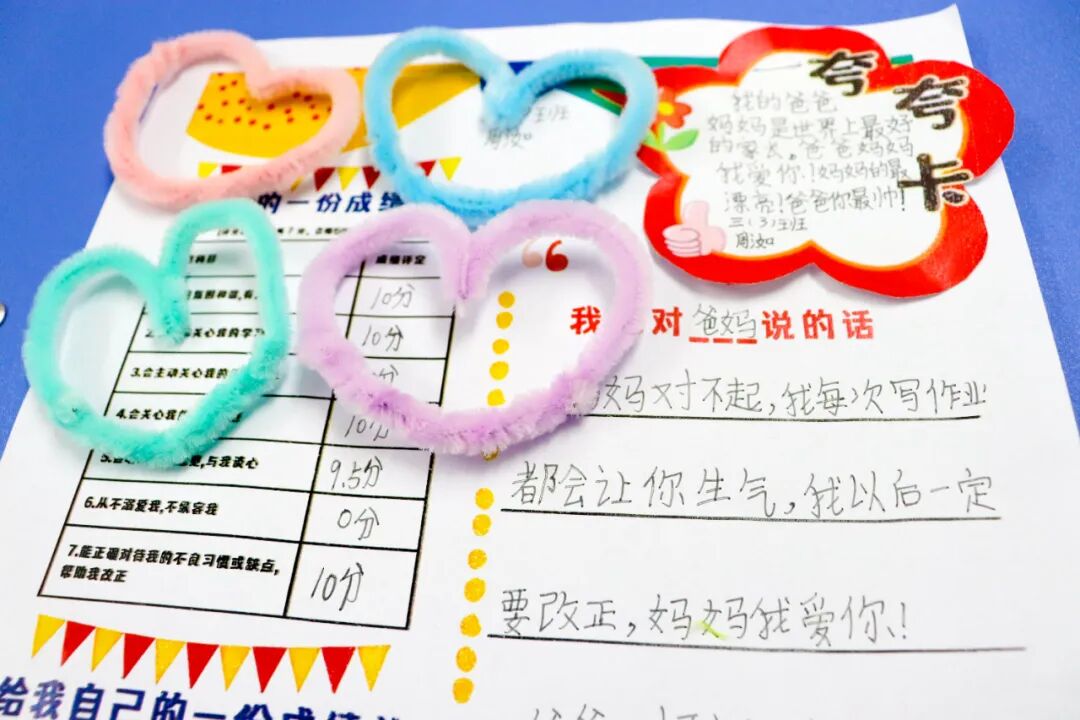 夸夸卡
我的爸爸
妈妈是世界上最好
的家长,爸爸妈妈
我爱你!妈妈的最
漂亮!爸爸你最帅!
三(3)班
周汝如
班
周汝如
的一份成绩
成绩评定
10分
关心我的学习
10分
3.会主动关心我的
分
4.会关心我
10分
5.
,与我谈心
9.5分
6.从不溺爱我,不纵容我
0分
7.能正确对待我的不良习惯或缺点,
帮助我改正
10分
给我自己的一份成绩
我 对爸妈说的话
妈对不起,我每次写作业
都会让你生气,我以后一定
要改正,妈妈我爱你!